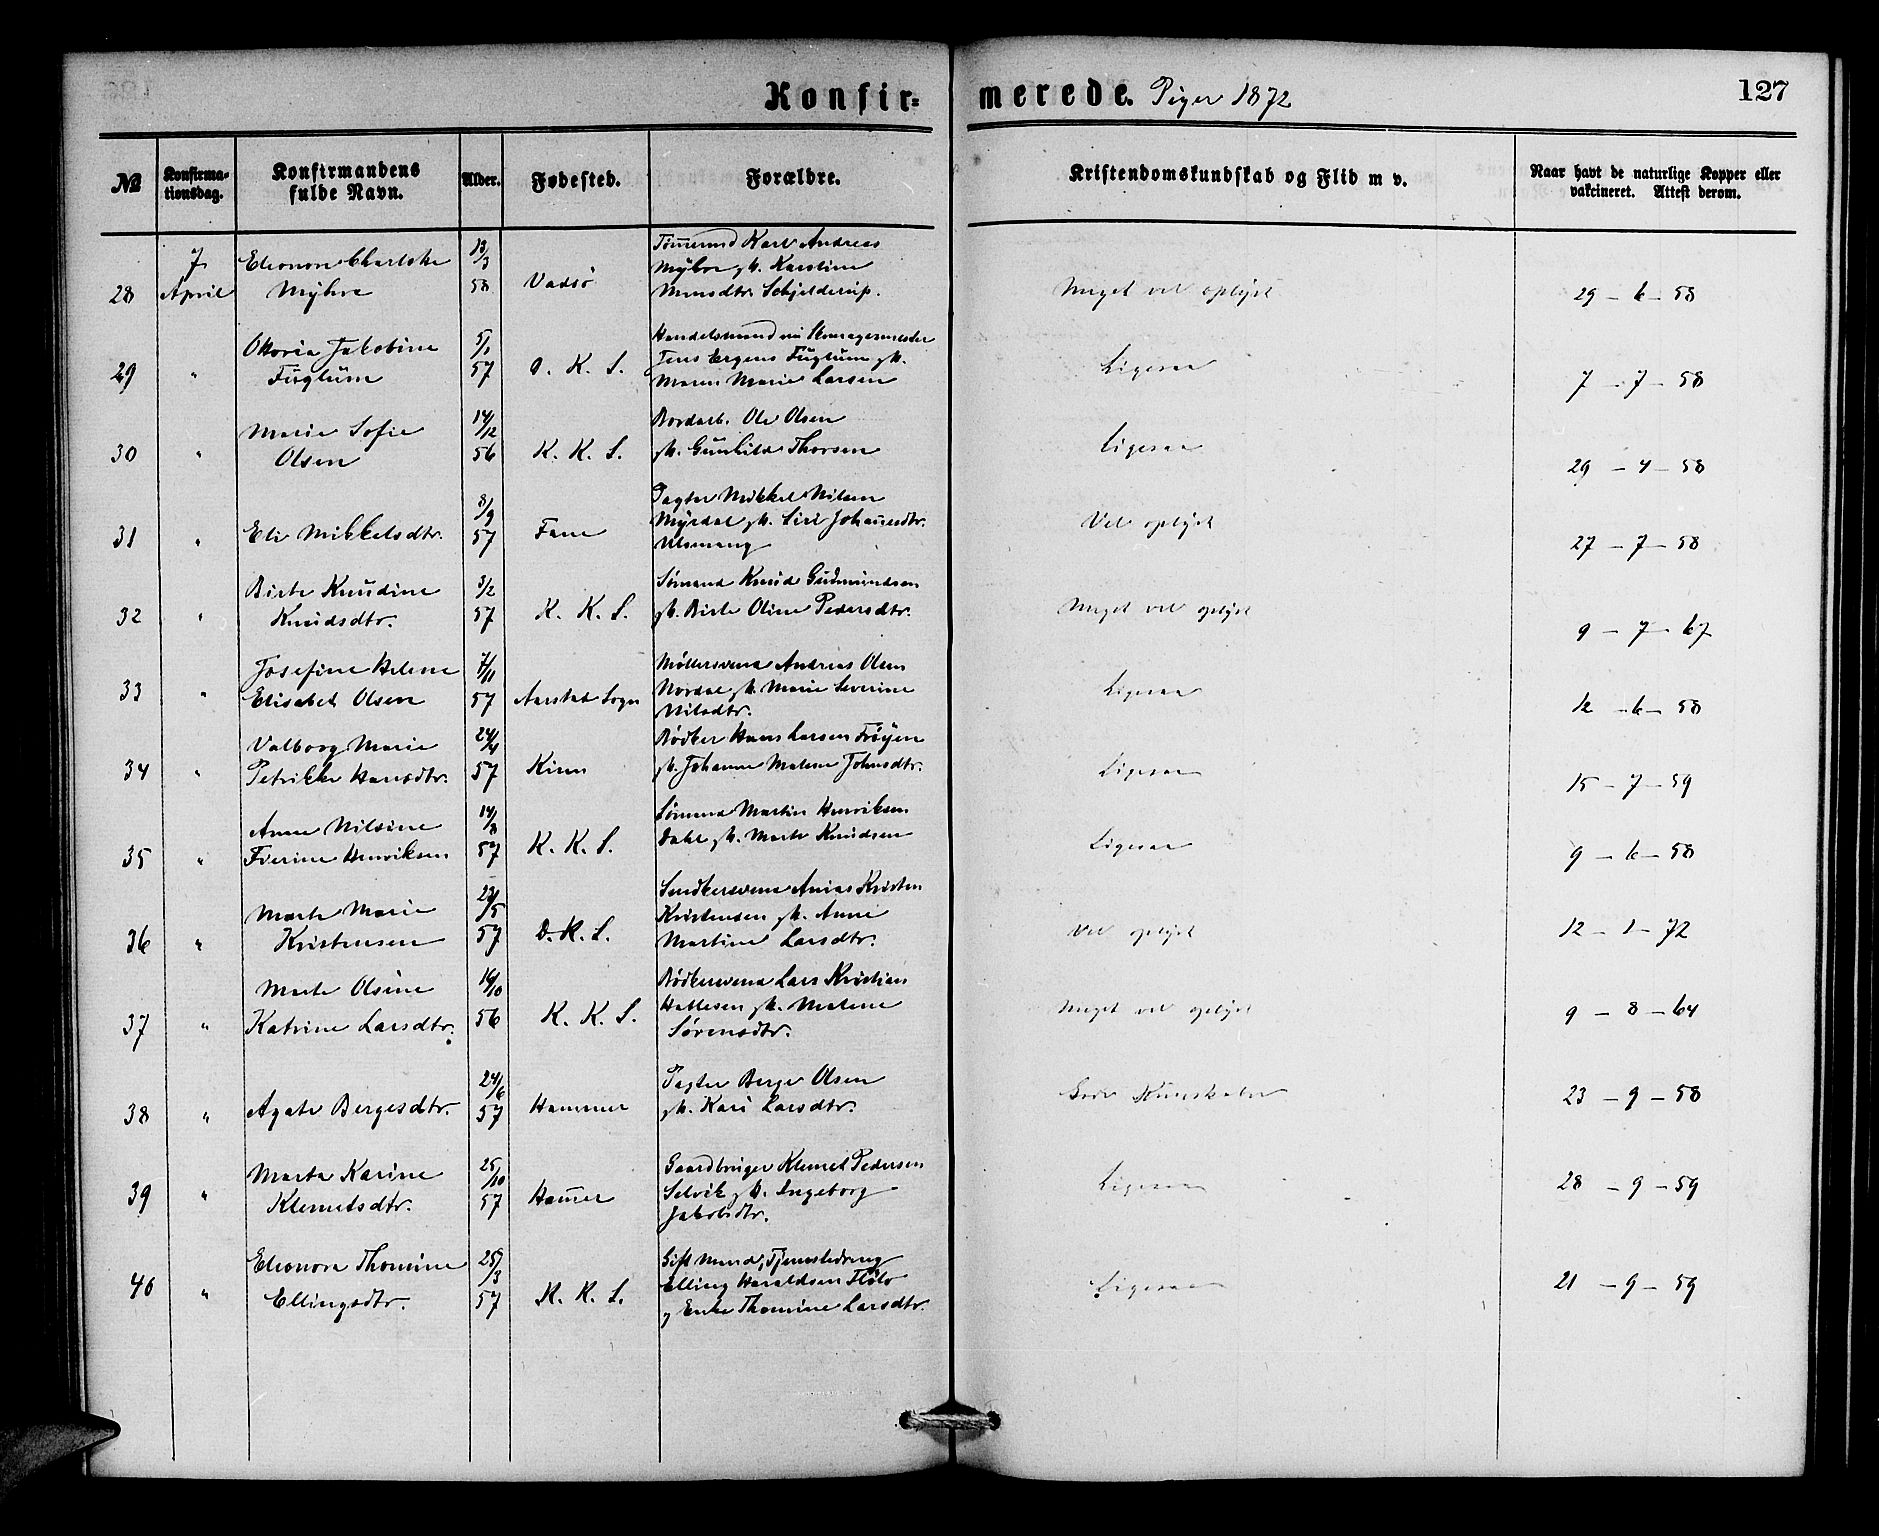 Konfir= merede. Piger 1872 127
№ Konfirma-tionsdag. Konfirmandens fulde Navn. Alder. Fødested. Forældre. Kristendomskundskab og Flid m v. Naar havt de naturlige Kopper eller vakcineret. Attest derom.
28 7 April Eleonore Charlotte Myhre 13/3 58 Vadsø Tømmermd Karl Andreas Myhre gk. Karoline Monsdtr. Schjelderup. Meget vel oplyst 29 - 6 - 58
29 " Oktovia Jakobine Fuglum 5/1 57 D. K. S. Handelsmand Jens Fuglum gk. Maren Marie Larsen Ligesaa 7 - 7 - 58
30 " Marie Sofie Olsen 14/12 56 K. K. S. Bordarb. Ole Olsen gk. Gunhild Thorsen Ligesaa 29 - 4 - 58
31 " Eli Mikkelsdtr. 8/9 57 Fane Pagter Mikkel Nilsen Myrdal gk. Siri Johannesdtr. Ulsmaag Vel oplyst 27 - 7 - 58
32 " Birte Knudine Knudsdtr. 3/2 57 K. K. S. Sømand Knud Gudmundsen gk. Birte Oline Pedersdtr. Meget vel oplyst 9 - 7 - 67
33 " Josefine Helene Elisabet Olsen 7/11 57 Aarstad Sogn Møllersvend Andreas Olsen Nordal gk. Marie Severine Nilsdtr. Ligesaa 12 - 6 - 58
34 " Valborg Marie Petrikke Hansdtr. 24/4 57 Kinn Bødker Hans Larsen Frøyen gk. Johanne Malene Johnsdtr. Ligesaa 15 - 7 - 59
35 " Anne Nilsine Iverine Henriksen 14/8 57 K. K. S. Sømand Martin Henriksen Dahl gk. Marte Knudsen Ligesaa 9 - 6 - 58
36 " Marte Marie Kristensen 23/5 57 D. K. S. Snedkersvend Kristen Kristensen gk. Anne Martine Larsdtr. Vel oplyst 12 - 1 - 72
37 " Marte Olsine Katrine Larsdtr. 16/10 56 K. K. S. Bødkersvend Lars Kristian Hallesen gk. Malene Sørensdtr. Meget vel oplyst 9 - 8 - 64
38 " Agate Bergesdtr. 24/6 57 Hammer Pagter Berge Olsen gk. Kari Larsdtr. Gode Kunskaber 23 - 9 - 58
39 " Marta Karine Klemetsdtr. 25/10 57 Ham̄er Gaardbruger Klemet Pedersen Selvik gk. Ingeborg Jakobsdtr. Ligesaa 28 - 9 - 59
40 " Eleonora Thomine Ellingsdtr. 25/3 57 K. K. S. Gift Mand, Tjenestedreng Elling Haraldsen Fløto og Enke Thomine Larsdtr. Ligesaa 21 - 9 - 59